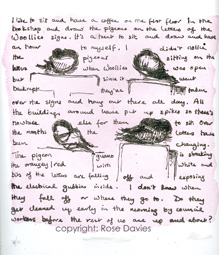 I like to sit and have a coffee on the first floor in the
bookshop and draw the pigeons on the letters of the
Woollies signs. It's a treat to sit and draw and have
an hour to myself. I didn't notice
the pigeons sitting on the
when Woollies was open
but since it went
bankrupt they've taken
over the signs and hang out there all day. All
the buildings around have put up spikes so there's
nowhere else for them to go. Over
the months the letters have
been changing.
The pigeon guano is streaking
the orangey/red with white and
bits of the letters are falling off and exposing
the electrical gubbins inside. I don't know when
they fall off or where they go to. Do they
get cleaned up early in the morning by council
workers before the rest of us are up and about?
copyright: Rose Davies